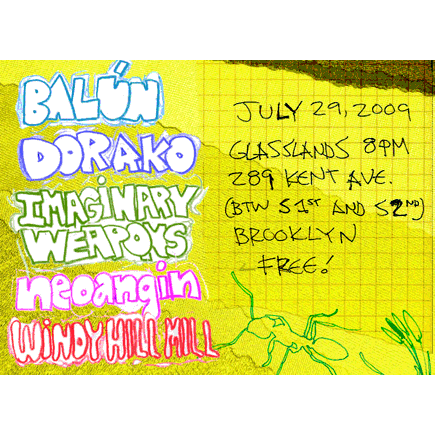 BALÚN
DORAKO
IMAGINARY
WEAPONS
neoangin
WINDY HILL MILL
JULY 29, 2009
GLASSLANDS 8PM
289 KENT AVE.
(BTW S1ST AND S2ND)
BROOKLYN
FREE!